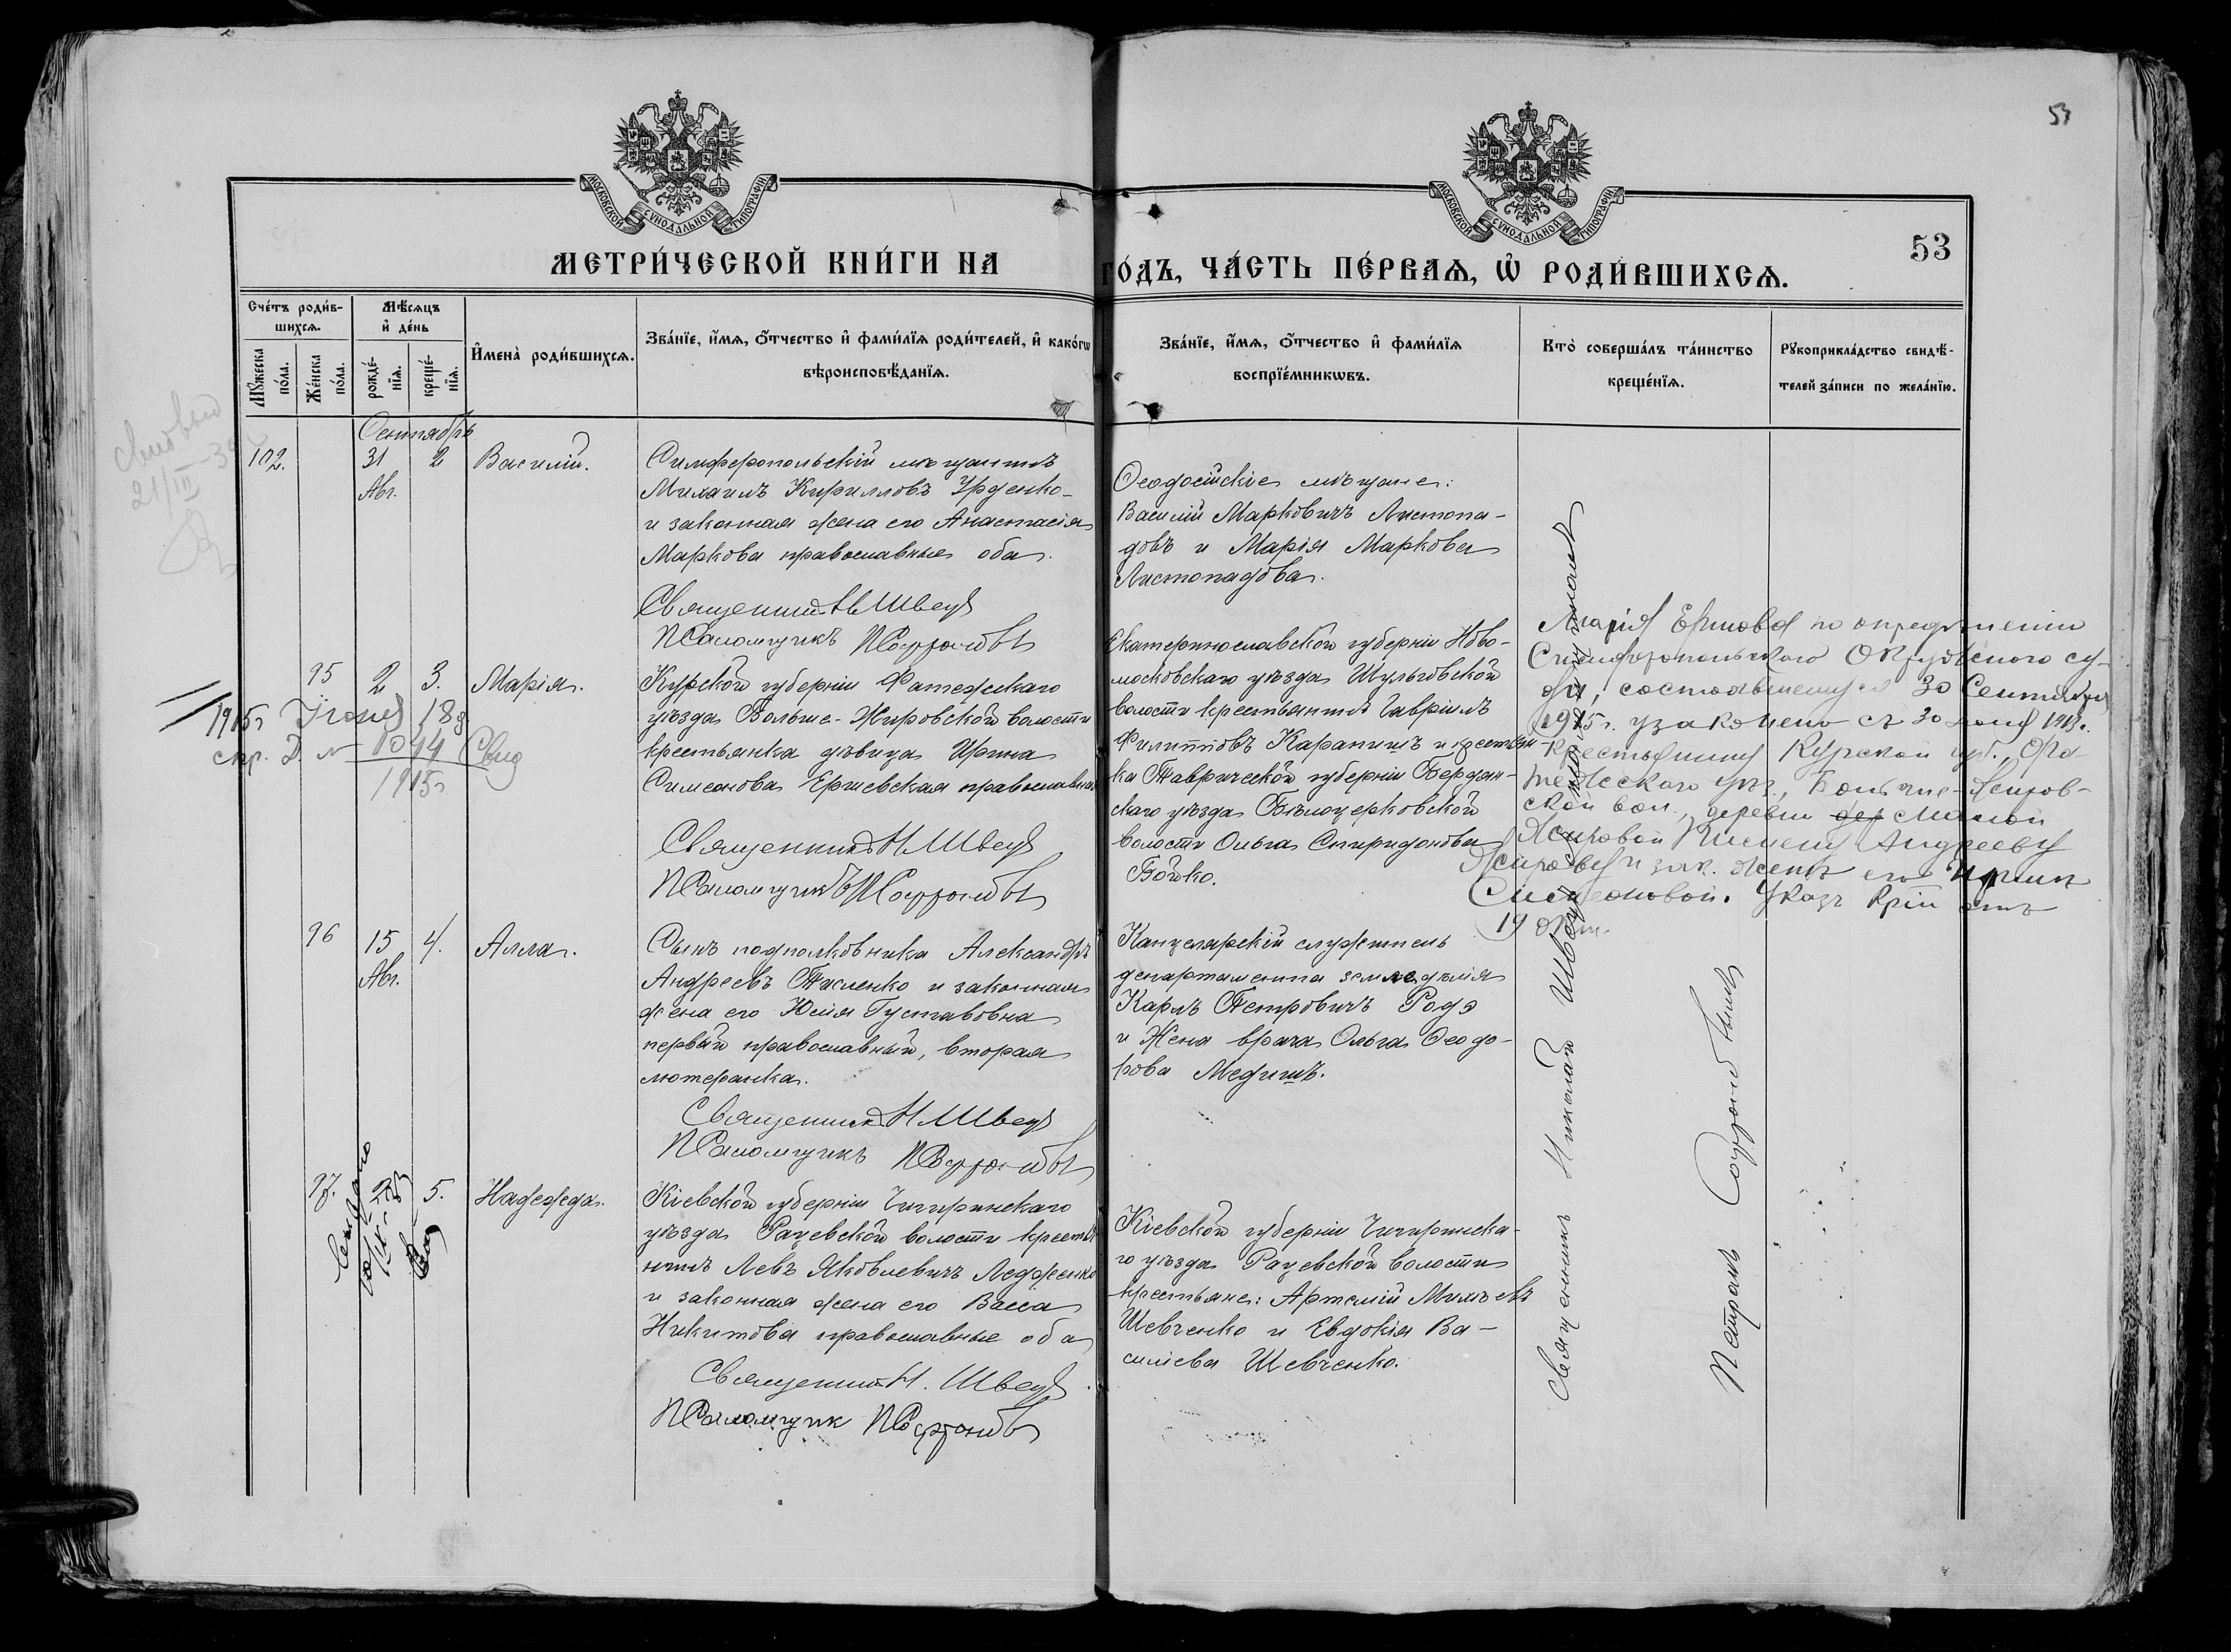 53
МОСКОВСКОЙ СУНОДАЛЬНОЙ ТИПОГРАФІИ
МОСКОВСКОЙ СУНОДАЛЬНОЙ ТИПОГРАФІИ
53
МЕТРИ́ЧЕСКОЙ КНИ́ГИ НА
ГО́ДЪ, ЧА́СТЬ ПЕ́РВАЯ, Ѡ҆ РОДИ́ВШИХСЯ.
Сче́тъ роди́в-
шихсѧ.
Мѣ́сѧцъ
и҆ де́нь
Мꙋ́жеска
по́ла.
Же́нска
по́ла.
рожде́-
нїѧ.
креще́-
нїѧ.
И҆мена̀ роди́вшихсѧ.
Зва́нїе, и҆́мѧ, ѻ҆́тчество и҆ фами́лїѧ роди́телей, и҆ како́гѡ
вѣроисповѣ́данїѧ.
Зва́нїе, и҆́мѧ, ѻ҆́тчество и҆ фами́лїѧ
воспрїе́мникѡвъ.
Кто̀ соверша́лъ та́инство
креще́нїѧ.
Рꙋкоприкла́дство свидѣ́-
телей за́писи по жела́нїю.
Сентябрь
102.
31
Авг.
2
Василій.
Симферопольскій мѣщанинъ
Михаилъ Кирилловъ Урденко
и законная жена его Анастасія
Маркова православные оба.
Священникъ Н Швецъ
Псаломщикъ П Софроновъ
Ѳеодосійскіе мѣщане:
Василій Марковичъ Листопа-
довъ и Марія Маркова
Листопадова.
95
2
3.
Марія.
1915г.
1044
1915г.
Курской губерніи Фатежскаго
уѣзда Больше-Жировской волости
крестьянка дѣвица Ирина
Симеонова Ершевская православная
Священникъ Н Швецъ
Псаломщикъ П Софроновъ
Екатеринославской губерніи Ново-
московскаго уѣзда Шульговской
волости крестьянинъ Гавріилъ
Филипповъ Карапишъ и крестьян-
ка Таврической губерніи Бердян-
скаго уѣзда Бѣлоцерковской
волости Ольга Спиридонова
Бойко.
Марія Ершова по опредѣленію
Симферопольскаго Окружнаго су-
да, состоявшемуся 30 Сентября
1915г. узаконена съ 30 1913г.
крестьянину Курской губ., Фа-
тежскаго уѣз., Больше-Жиров-
ской вол., деревни дер Малой
Жировой Андрееву
Жирову и зак. женѣ его Иринѣ
Симеоновой. Указъ отъ
19 Окт.
96
15
Авг.
4.
Алла.
Сынъ подполковника Александръ
Андреевъ Тисленко и законная
жена его Юлія Густавовна
первый православный, вторая
лютеранка.
Священникъ Н Швецъ
Псаломщикъ П Софроновъ
Канцелярскій служитель
департамента земледѣлія
Карлъ Петровичъ Родэ
и Жена врача Ольга Ѳеодо-
рова Медишъ.
97.
2
5.
Надежда.
Кіевской губерніи Чигиринскаго
уѣзда Рацевской волости крестья-
нинъ Левъ Яковлевичъ Ледженко
и законная жена его Васса
Никитова православные оба
Священникъ Н. Швецъ
Псаломщик П Софроновъ
Кіевской губерніи Чигиринска-
го уѣзда Рацевской волости
крестьяне: Артемій Михѣевъ
Шевченко и Евдокія Ва-
силіева Шевченко.
Священникъ Николай Швецъ
Петромъ Софроновымъ